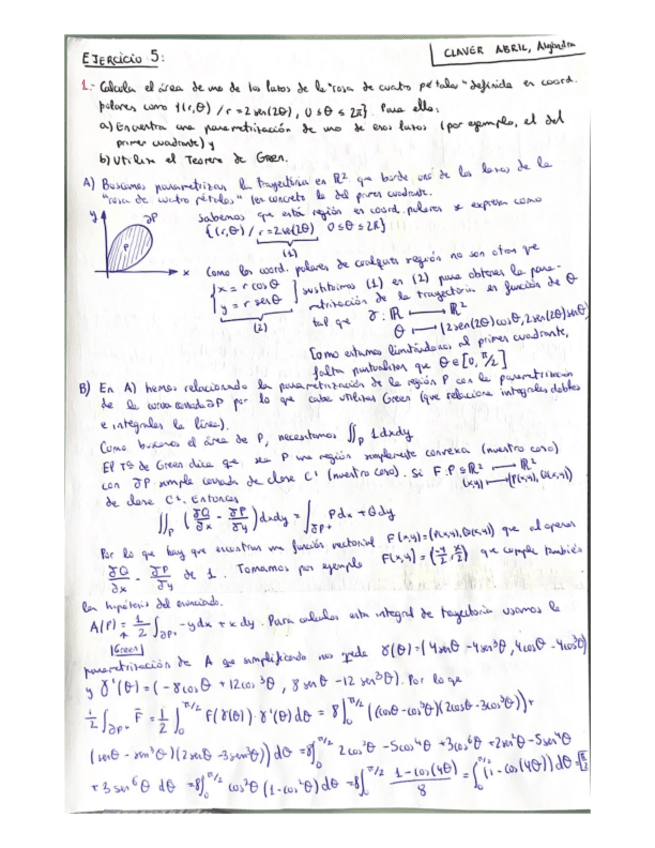 EJERCICIO 5:
CLAVER ABRIL, Alejandra
1.- Calcula el área de uno de los lazos de la "rosa de cuatro pétalos" definida en coord.
polares como {(r,θ) / r = 2 sen(2θ), 0 ≤ θ ≤ 2π}. Para ello:
a) Encuentra una parametrización de uno de esos lazos (por ejemplo, el del
primer cuadrante) y
b) Utiliza el Teorema de Green.
A) Buscamos parametrizar la trayectoria en ℝ² que borde uno de los lazos de la
"rosa de cuatro pétalos" (en concreto la del primer cuadrante.
y
∂P
P
x
Sabemos que esta región en coord. polares se expresa como
{(r,θ) / r = 2sen(2θ) 0 ≤ θ ≤ 2π}
(1)
Como las coord. polares de cualquier región no son otras que
{ x = r cos θ
y = r sen θ
(2)
sustituimos (1) en (2) para obtener la para-
metrización de la trayectoria en función de θ
tal que γ: ℝ ⟼ ℝ²
θ ⟼ (2sen(2θ)cosθ, 2sen(2θ)senθ)
Como estamos limitándonos al primer cuadrante,
falta puntualizar que θ ∈ [0, π/2]
B) En A) hemos relacionado la parametrización de la región P con la parametrización
de la curva cerrada ∂P por lo que cabe utilizar Green (que relaciona integrales dobles
e integrales de línea).
Como buscamos el área de P, necesitamos ∬_P 1 dxdy
El Tª de Green dice que sea P una región simplemente convexa (nuestro caso)
con ∂P simple cerrada de clase C¹ (nuestro caso). Si F: P ⊆ ℝ² ⟼ ℝ²
(x,y) ⟼ (P(x,y), Q(x,y))
de clase C¹. Entonces
∬_P (∂Q/∂x - ∂P/∂y) dxdy = ∫_∂P+ Pdx + Qdy
Por lo que hay que encontrar una función vectorial F(x,y) = (P(x,y), Q(x,y)) que al operar
∂Q/∂x - ∂P/∂y de 1. Tomamos por ejemplo F(x,y) = (-y/2, x/2) que cumple también
las hipótesis del enunciado.
A(P) = 1/2 ∫_∂P+ -ydx + xdy. Para calcular esta integral de trayectoria usamos la
|Green|
parametrización de A que simplificando nos queda γ(θ) = (4senθ - 4sen³θ, 4cosθ - 4cos³θ)
y γ'(θ) = (-8cosθ + 12cos³θ, 8senθ - 12sen³θ). Por lo que
1/2 ∫_∂P+ F̄ = 1/2 ∫_0^π/2 F(γ(θ)) · γ'(θ) dθ = 8 ∫_0^π/2 ((cosθ - cos³θ)(2cosθ - 3cos³θ)) +
(senθ - sen³θ)(2senθ - 3sen³θ)) dθ = 8∫_0^π/2 2cos²θ - 5cos⁴θ + 3cos⁶θ + 2sen²θ - 5sen⁴θ
+ 3sen⁶θ dθ = 8∫_0^π/2 cos²θ (1 - cos²θ) dθ = 8∫_0^π/2 (1 - cos(4θ))/8 = ∫_0^π/2 (1 - cos(4θ)) dθ = π/2